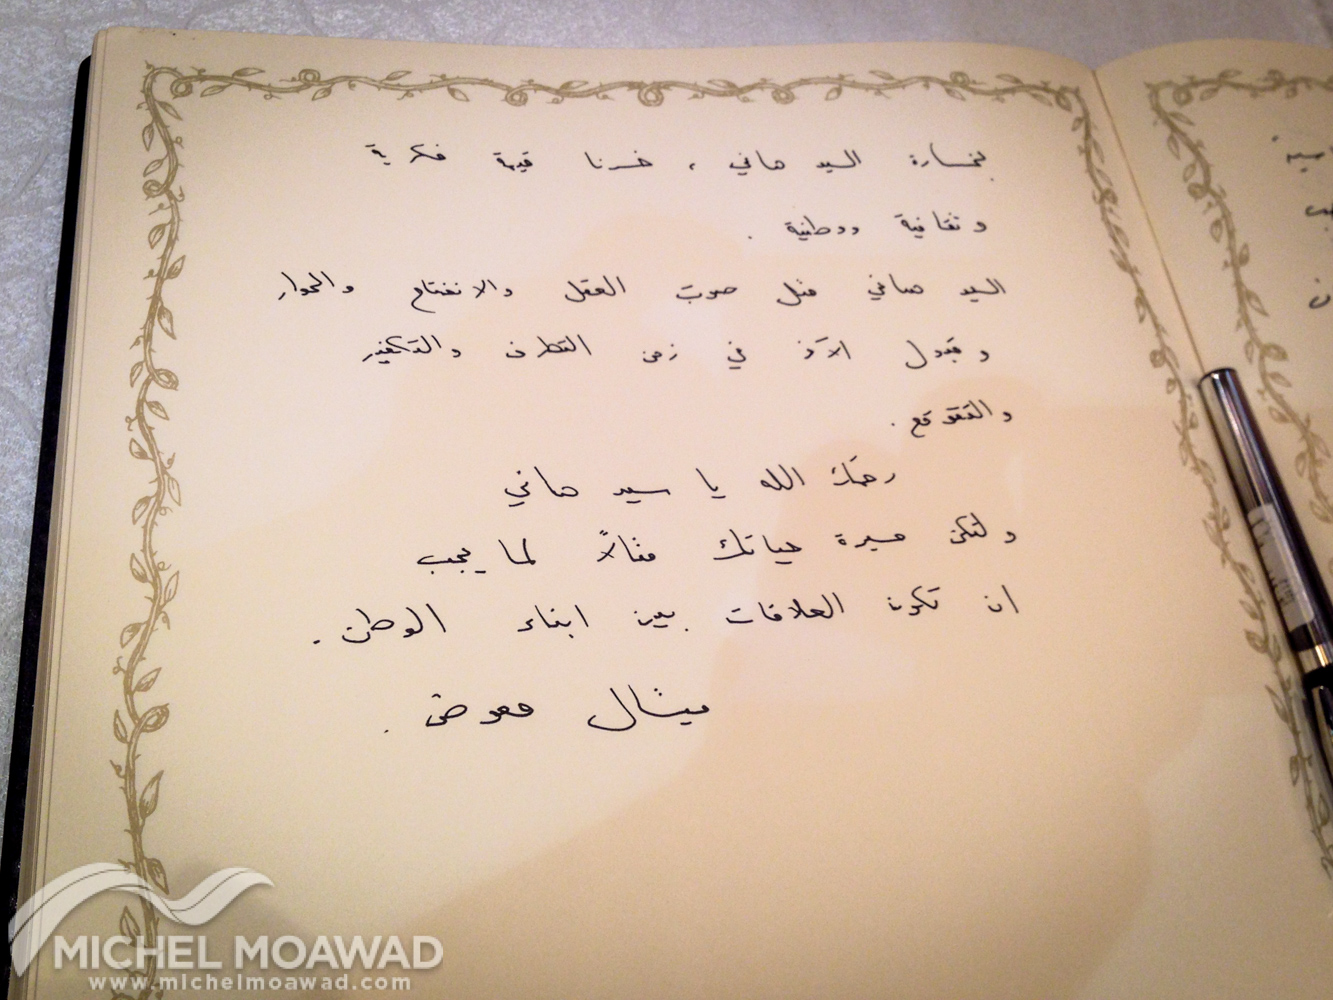 بخسارة السيد هاني ، خسرنا قيمة فكرية
وثقافية ووطنية .
السيد هاني مثل صوت العقل والانفتاح والحوار
وقبول الآخر في زمن التطرف والتكفير
والتقوقع .
رحمك الله يا سيد هاني
ولتكن مسيرة حياتك مثالاً لما يجب
ان تكون العلاقات بين ابناء الوطن .
ميشال معوض .
MICHEL MOAWAD
www.michelmoawad.com